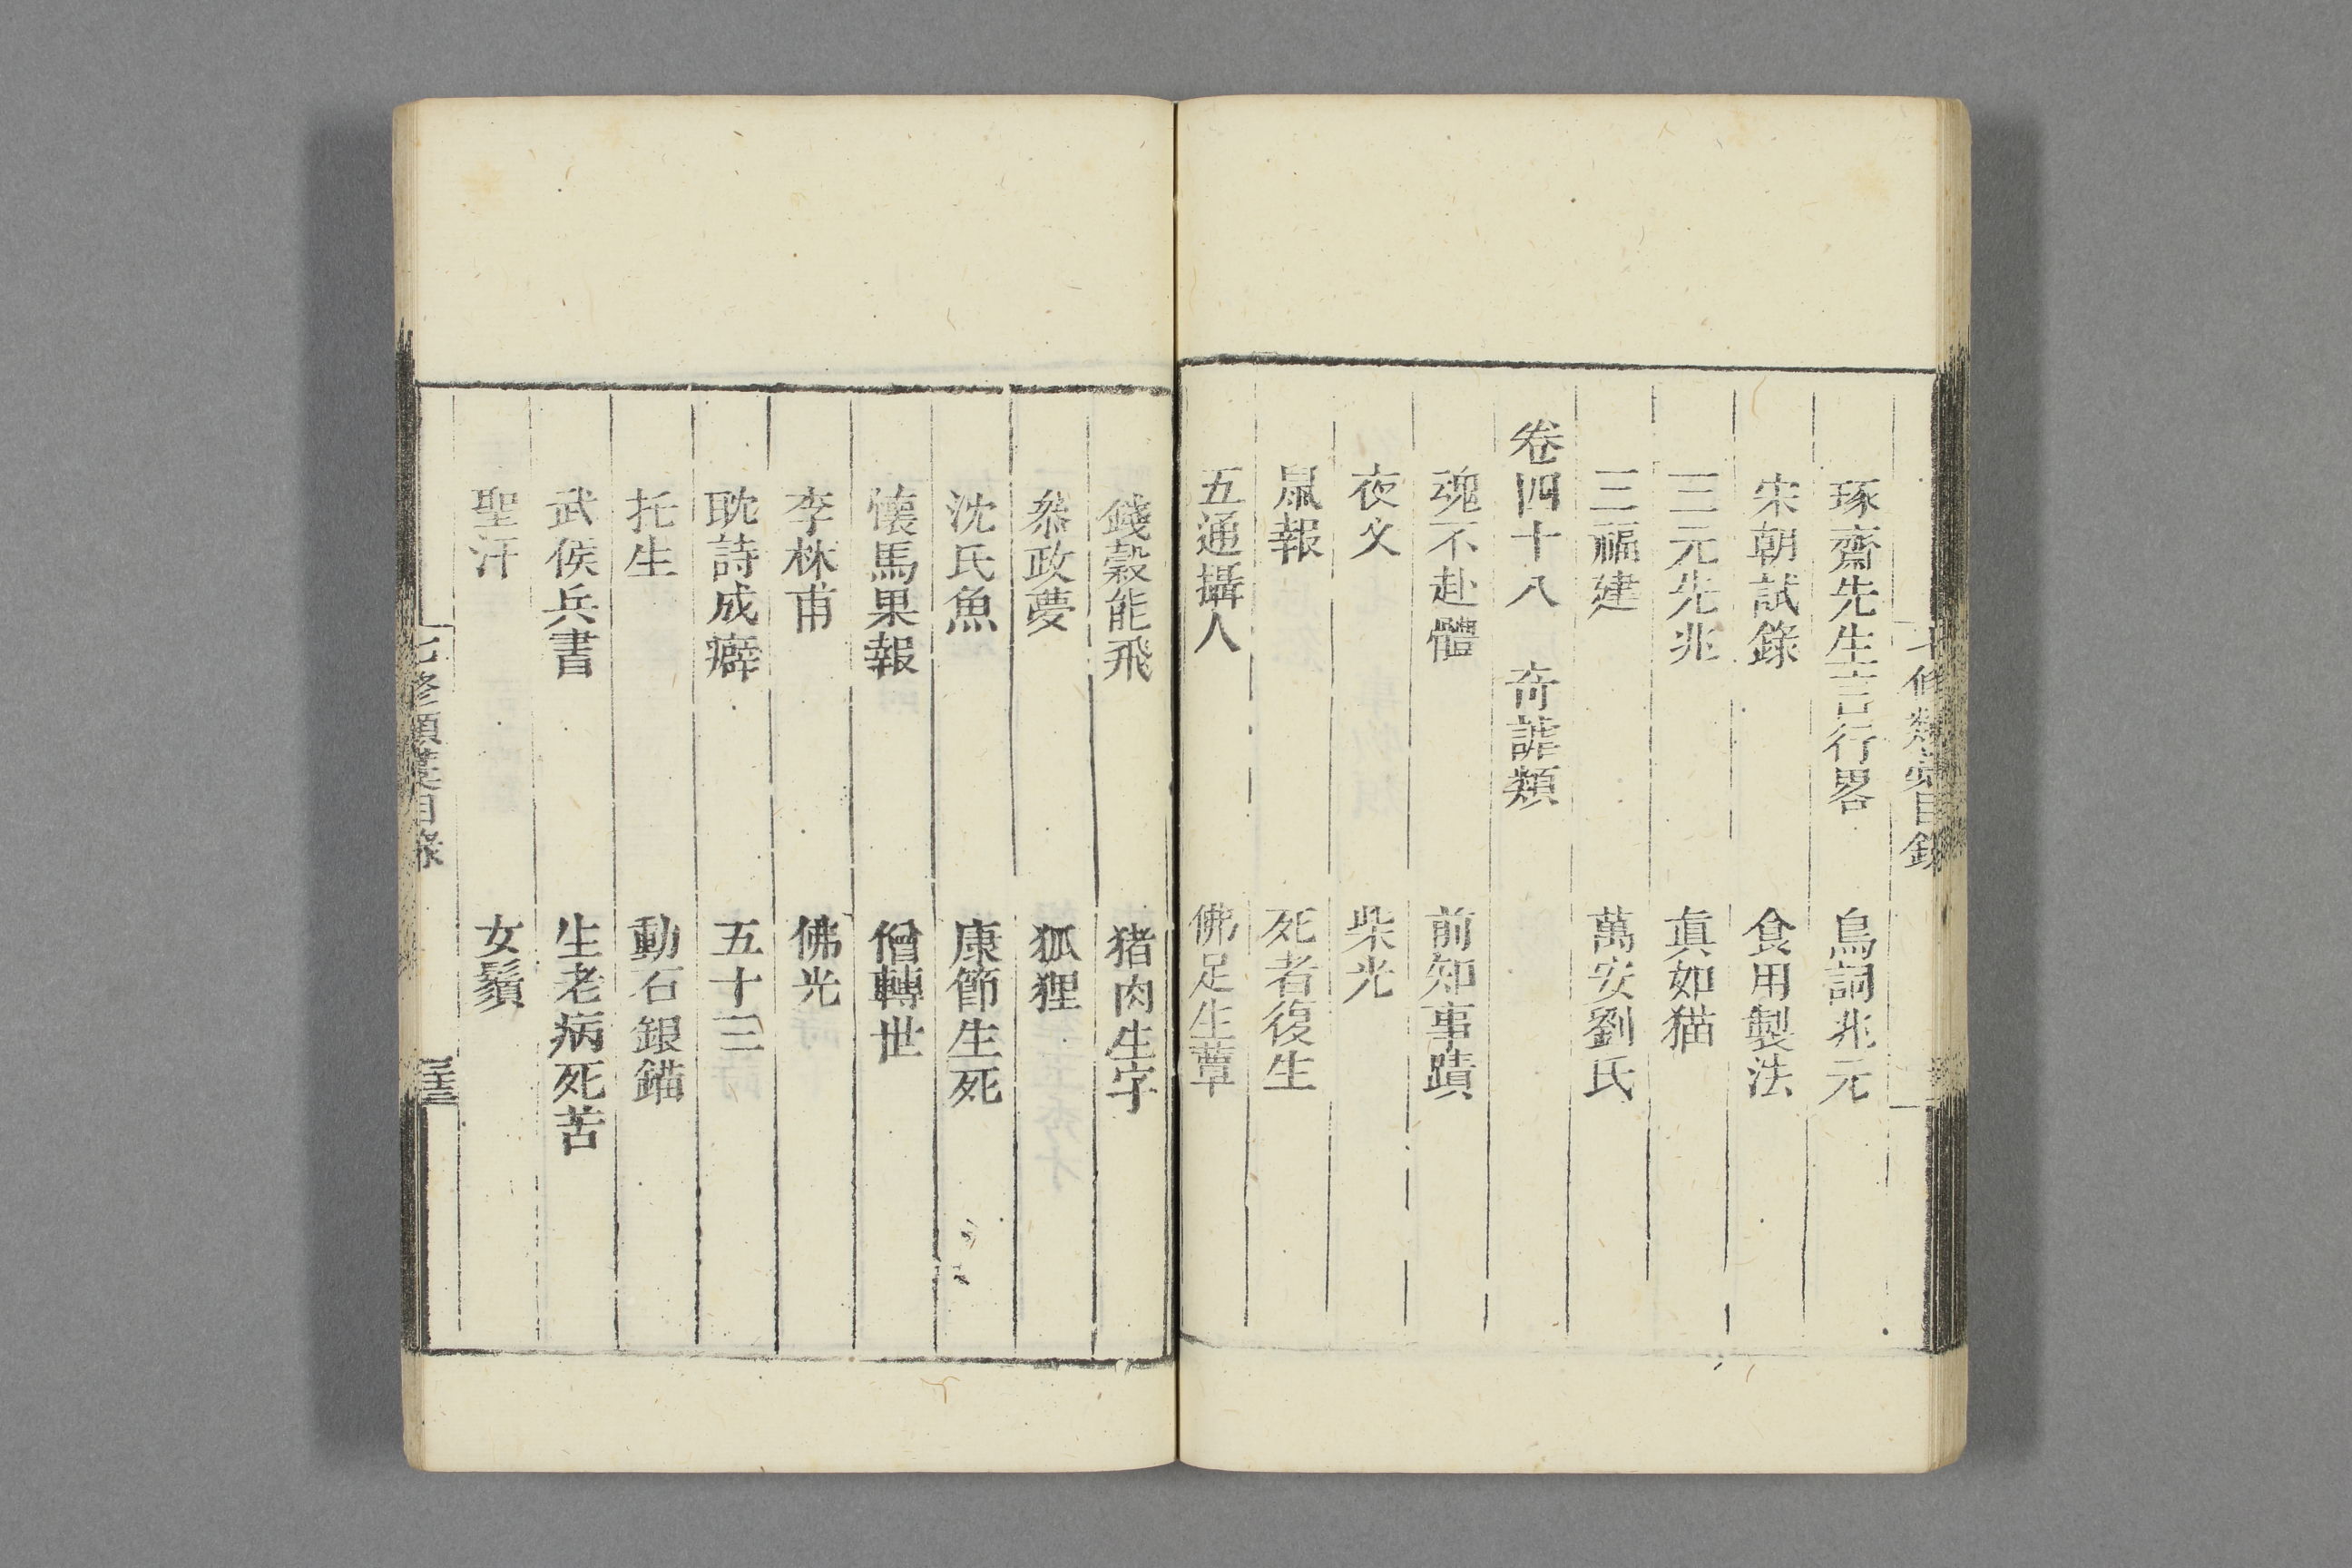 琢齋先生言行畧　鳥詞兆元
宋朝試錄　食用製法
三元先兆　真如猫
三福建　萬安劉氏
卷四十八　奇謔類
魂不赴體　前知事蹟
夜叉　柴光
鼠報　死者復生
五通攝人　佛足生蕈
錢穀能飛　猪肉生字
叅政夢　狐狸
沈氏魚　康節生死
懐馬果報　僧轉世
李林甫　佛光
耽詩成癖　五十三
托生　動石銀錨
武侯兵書　生老病死苦
聖汗　女鬚
七修類藁目錄